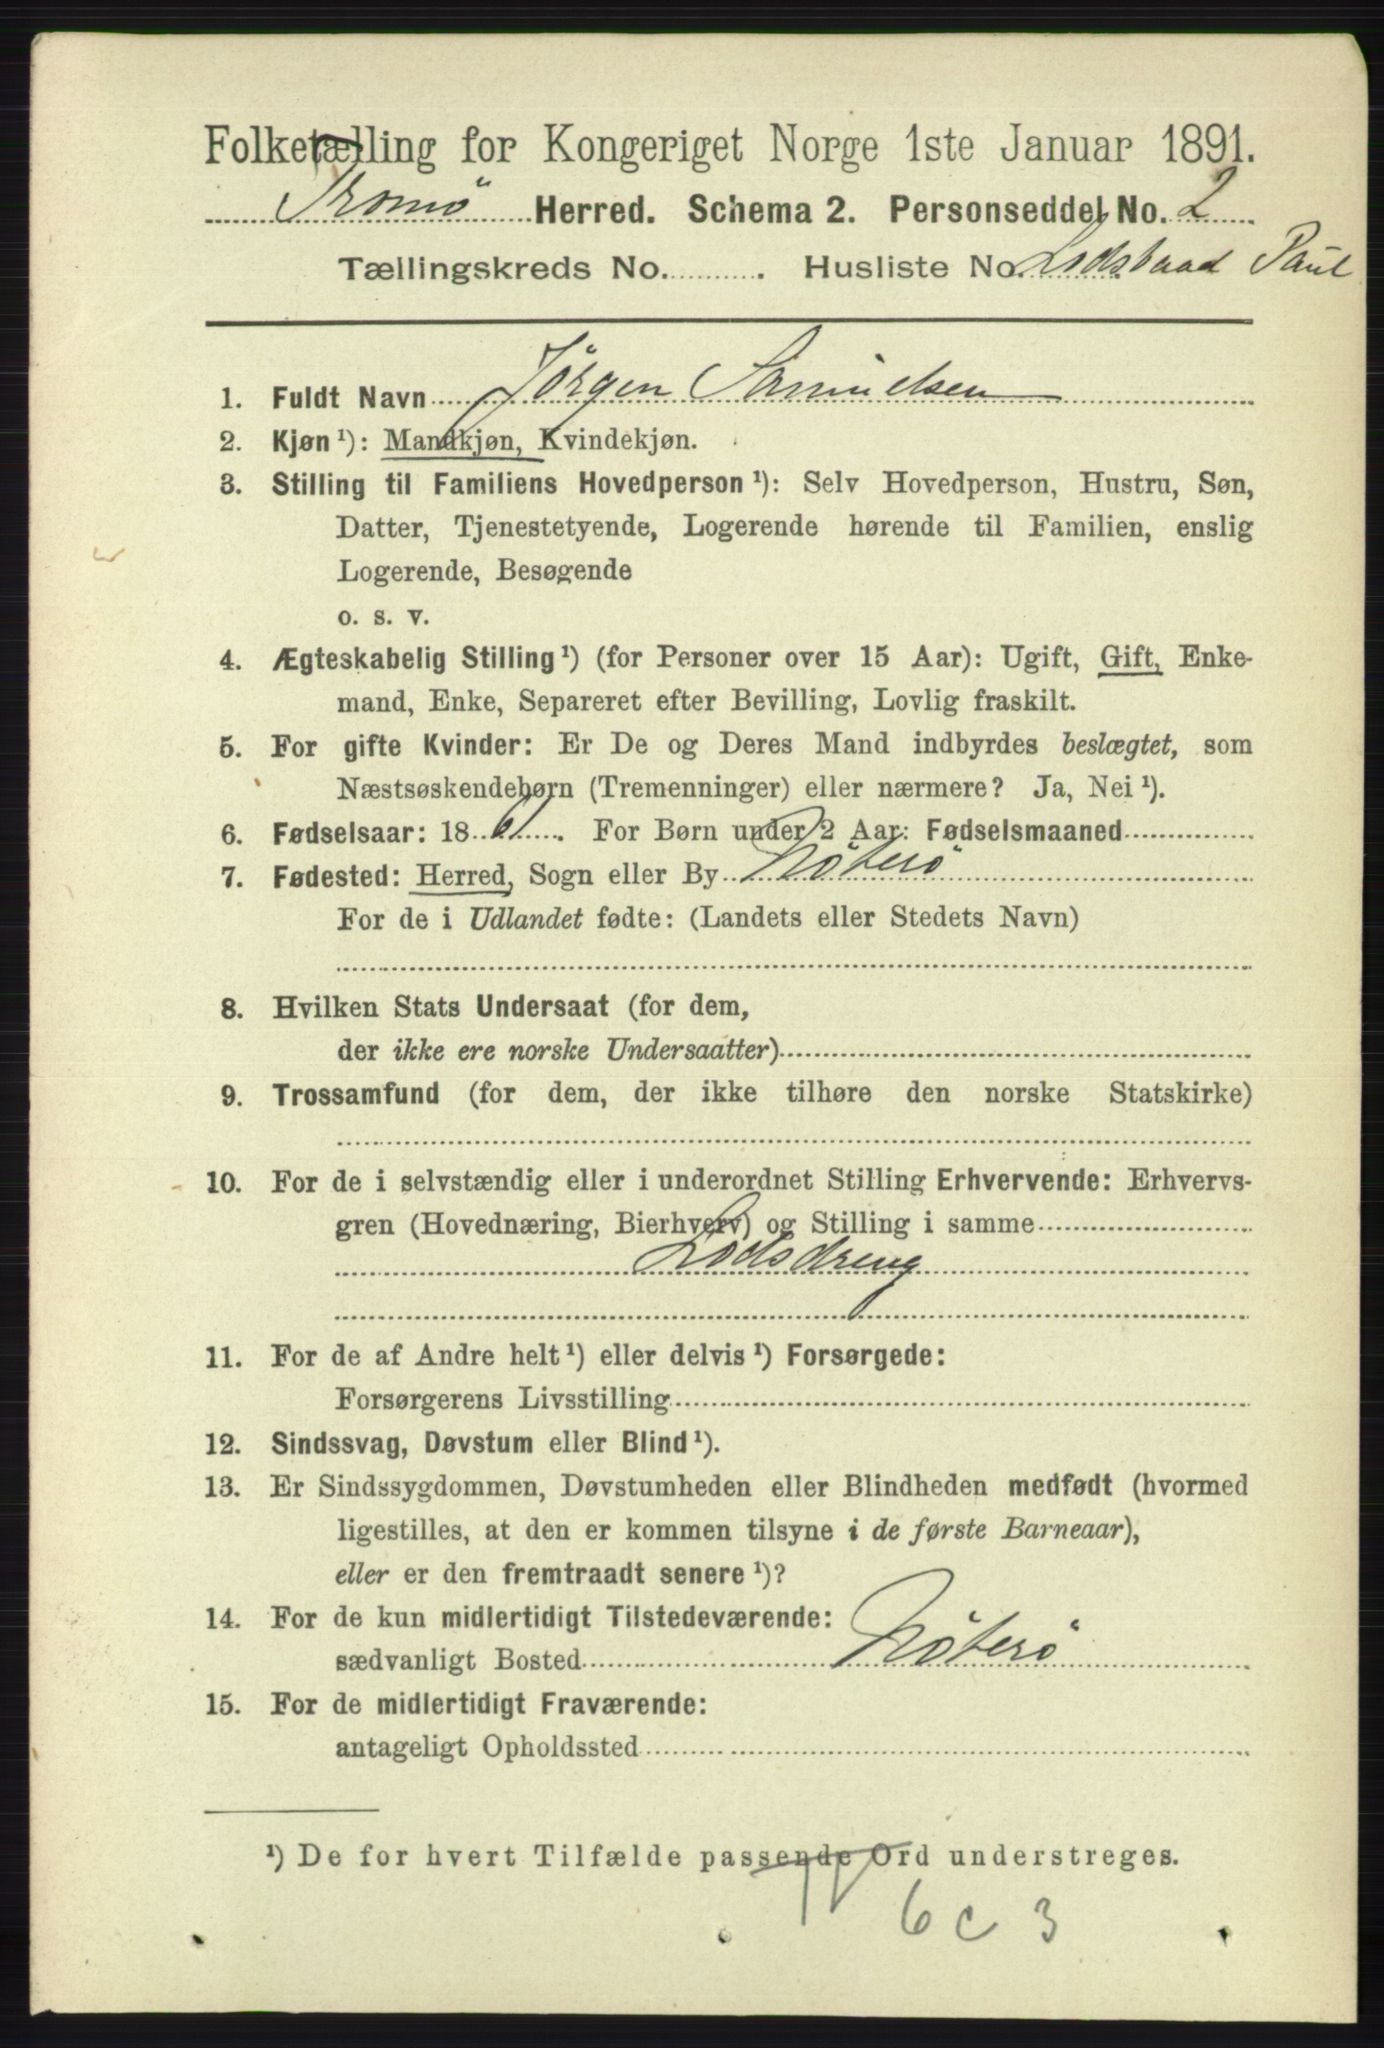 Folketælling for Kongeriget Norge 1ste Januar 1891.
Tromö Herred. Schema 2. Personseddel No. 2
Tællingskreds No. . Husliste No. Lodsbaad Paul
1. Fuldt Navn Jörgen Samuelsen
2. Kjøn ¹): Mandkjøn, Kvindekjøn.
3. Stilling til Familiens Hovedperson ¹): Selv Hovedperson, Hustru, Søn,
Datter, Tjenestetyende, Logerende hørende til Familien, enslig
Logerende, Besøgende
o. s. v.
4. Ægteskabelig Stilling ¹) (for Personer over 15 Aar): Ugift, Gift, Enke-
mand, Enke, Separeret efter Bevilling, Lovlig fraskilt.
5. For gifte Kvinder: Er De og Deres Mand indbyrdes beslægtet, som
Næstsøskendebørn (Tremenninger) eller nærmere? Ja, Nei ¹).
6. Fødselsaar: 1861. For Børn under 2 Aar: Fødselsmaaned
7. Fødested: Herred, Sogn eller By Nöterö
For de i Udlandet fødte: (Landets eller Stedets Navn)
8. Hvilken Stats Undersaat (for dem,
der ikke ere norske Undersaatter)
9. Trossamfund (for dem, der ikke tilhøre den norske Statskirke)
10. For de i selvstændig eller i underordnet Stilling Erhvervende: Erhvervs-
gren (Hovednæring, Bierhverv) og Stilling i samme
Lodsdreng
11. For de af Andre helt ¹) eller delvis ¹) Forsørgede:
Forsørgerens Livsstilling
12. Sindssvag, Døvstum eller Blind ¹).
13. Er Sindssygdommen, Døvstumheden eller Blindheden medfødt (hvormed
ligestilles, at den er kommen tilsyne i de første Barneaar),
eller er den fremtraadt senere ¹)?
14. For de kun midlertidigt Tilstedeværende:
sædvanligt Bosted Nöterö
15. For de midlertidigt Fraværende:
antageligt Opholdssted
¹) De for hvert Tilfælde passende Ord understreges.
6 c 3